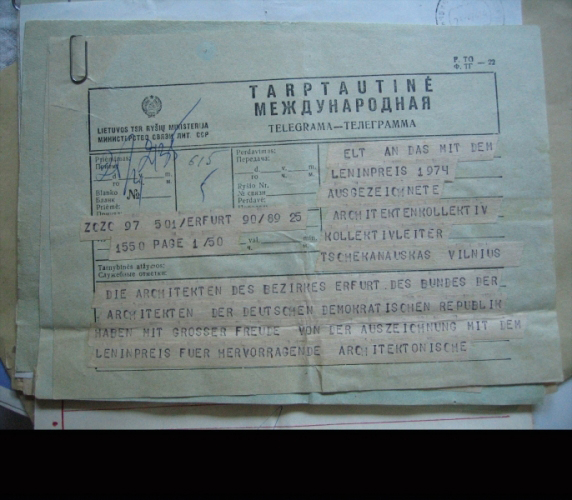 F. TG
Ф. ТГ — 22
TARPTAUTINĖ
МЕЖДУНАРОДНАЯ
TELEGRAMA—ТЕЛЕГРАММА
LIETUVOS TSR RYŠIŲ MINISTERIJA
МИНИСТЕРСТВО СВЯЗИ ЛИТ. ССР
Priėmimas:
Прием:
Blanko №
Бланк
Priėmė
Принял
615
5
Perdavimas:
Передача:
Ryšio Nr.
№ связи
Perdavė
ELT AN DAS MIT DEM
LENINPREIS 1974
AUSGEZEICHNETE
ARCHITEKTENKOLLEKTIV
KOLLEKTIVLEITER
TSCHEKANAUSKAS VILNIUS
ZCZC 97 501/ERFURT 90/89 25
1550 PAGE 1/50
Tarnybinės atžymos:
Служебные отметки:
DIE ARCHITEKTEN DES BEZIRKES ERFURT DES BUNDES DER
ARCHITEKTEN DER DEUTSCHEN DEMOKRATISCHEN REPUBLIK
HABEN MIT GROSSER FREUDE VON DER AUSZEICHNUNG MIT DEM
LENINPREIS FUER HERVORRAGENDE ARCHITEKTONISCHE